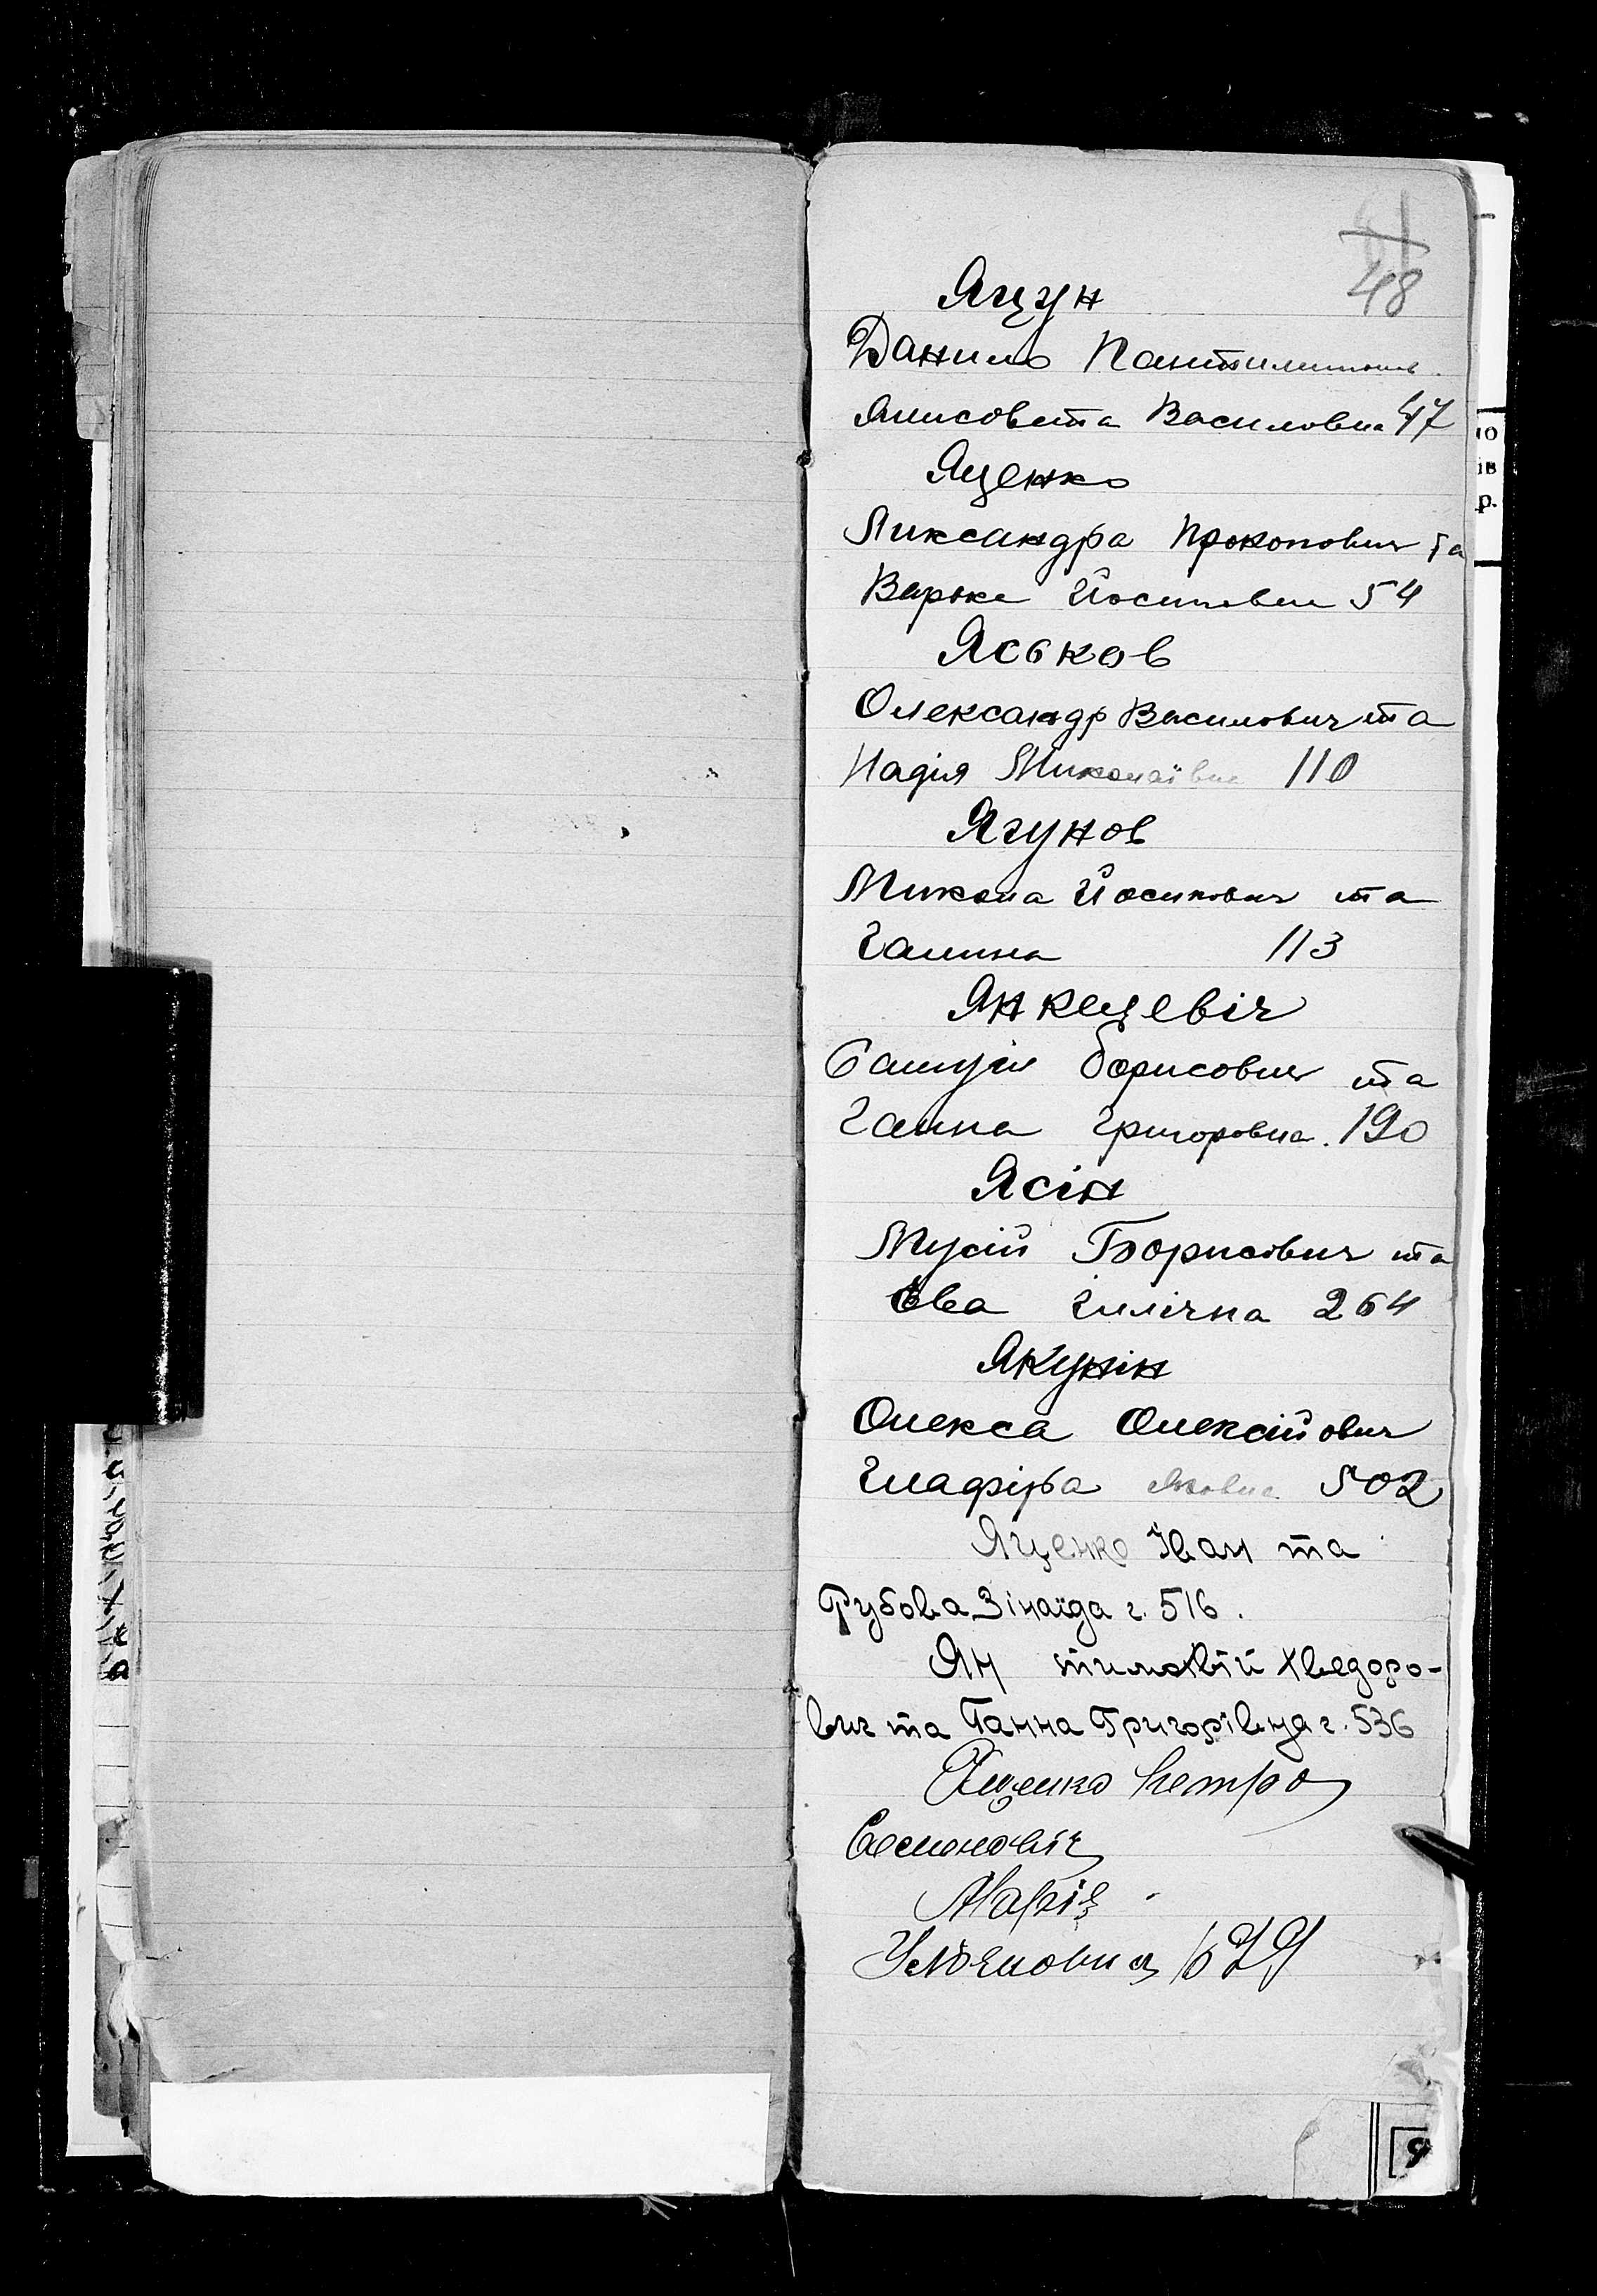 48
Яцун
Данило
Василовна 47
Яценко
Ликсандра Прокопович та
Варка Йосиповна 54
Яськов
Олександр Василович та
Надія Миколаївна 110
Ягунов
Микола Йосипович та
Галина 113
Янкецевіч
Самуїл Борисович та
Ганна Григоровна. 190
Ясін
Мусій Борисович та
Ева Ілічна 264
Якунін
Олекса Олексійович
Глафіра 502
Яценко Іван та
Рубова Зінаїда г. 516.
Ян тимохвій Хведоро-
вич та Ганна Григорівна г. 536
Яценко Петро
Семенович
Марія
Уляновна 679
Я